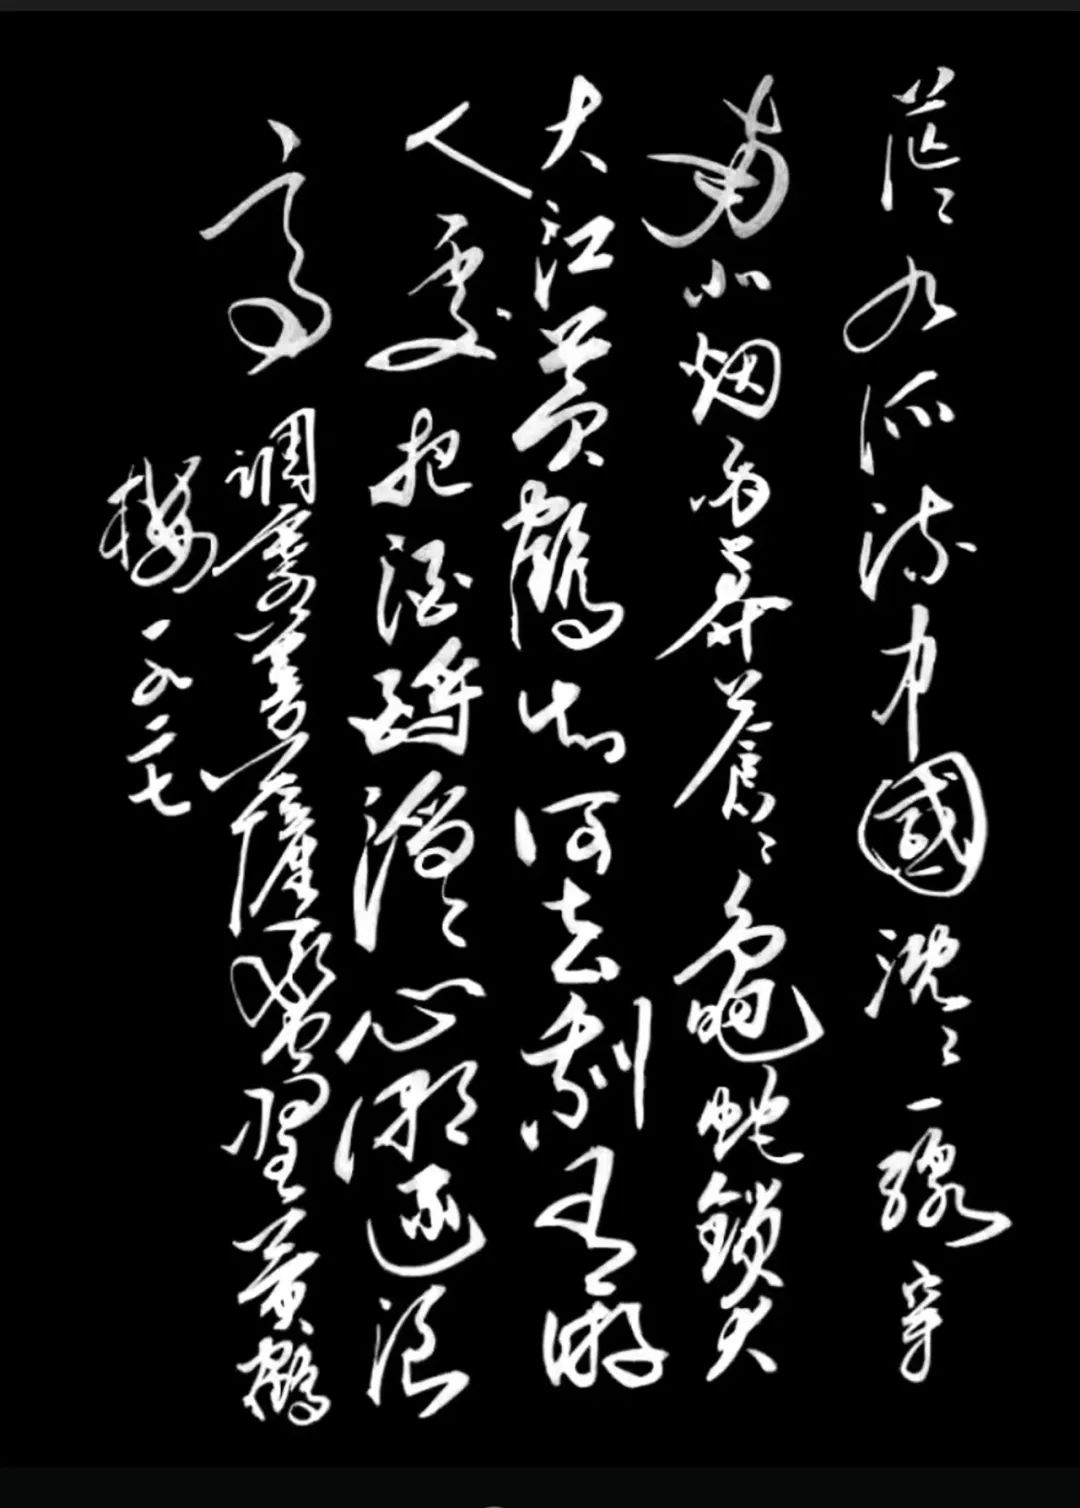 茫〻九派流中國沈〻一線穿
南北烟雨莽蒼〻龜蛇鎖大
大江黃鶴知何去剩有游
人處把酒酹滔〻心潮逐浪
高 調寄菩薩蠻望黃鶴
樓一九二七